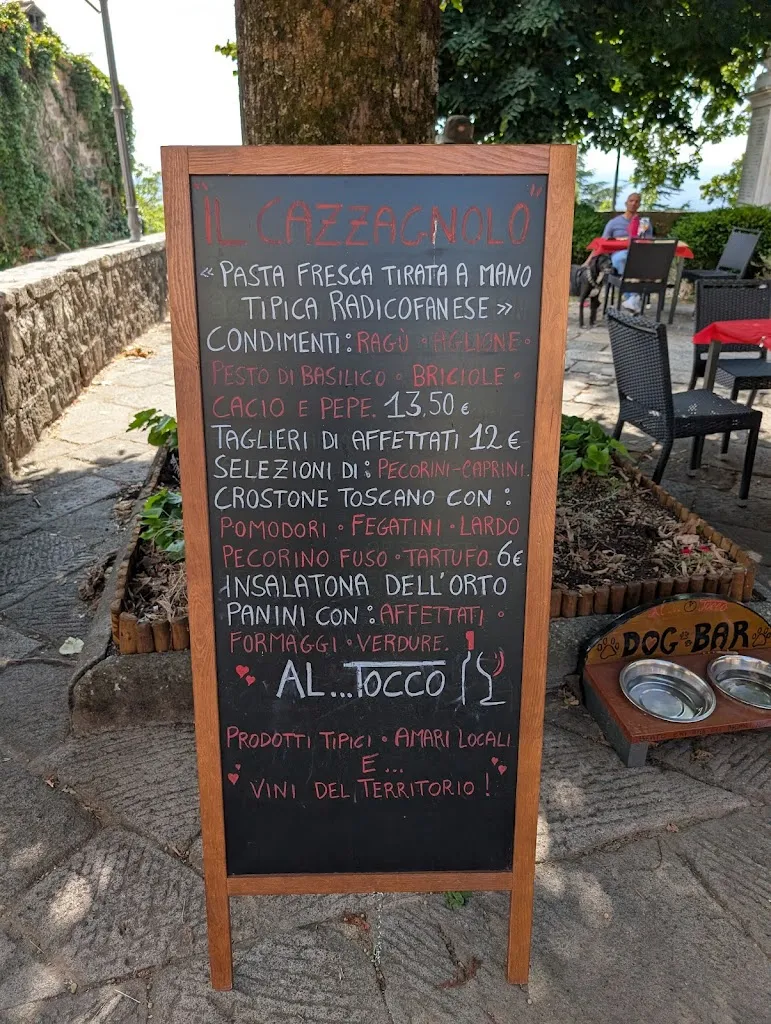 "IL CAZZAGNOLO"
« PASTA FRESCA TIRATA A MANO
TIPICA RADICOFANESE »
CONDIMENTI: RAGÙ • AGLIONE •
PESTO DI BASILICO • BRICIOLE •
CACIO E PEPE. 13,50 €
TAGLIERI DI AFFETTATI 12 €
SELEZIONI DI: PECORINI-CAPRINI.
CROSTONE TOSCANO CON:
POMODORI • FEGATINI • LARDO
PECORINO FUSO • TARTUFO. 6€
INSALATONA DELL'ORTO
PANINI CON: AFFETTATI •
FORMAGGI • VERDURE.
AL...TOCCO
PRODOTTI TIPICI • AMARI LOCALI
E...
VINI DEL TERRITORIO!
AL...TOCCO
DOG-BAR